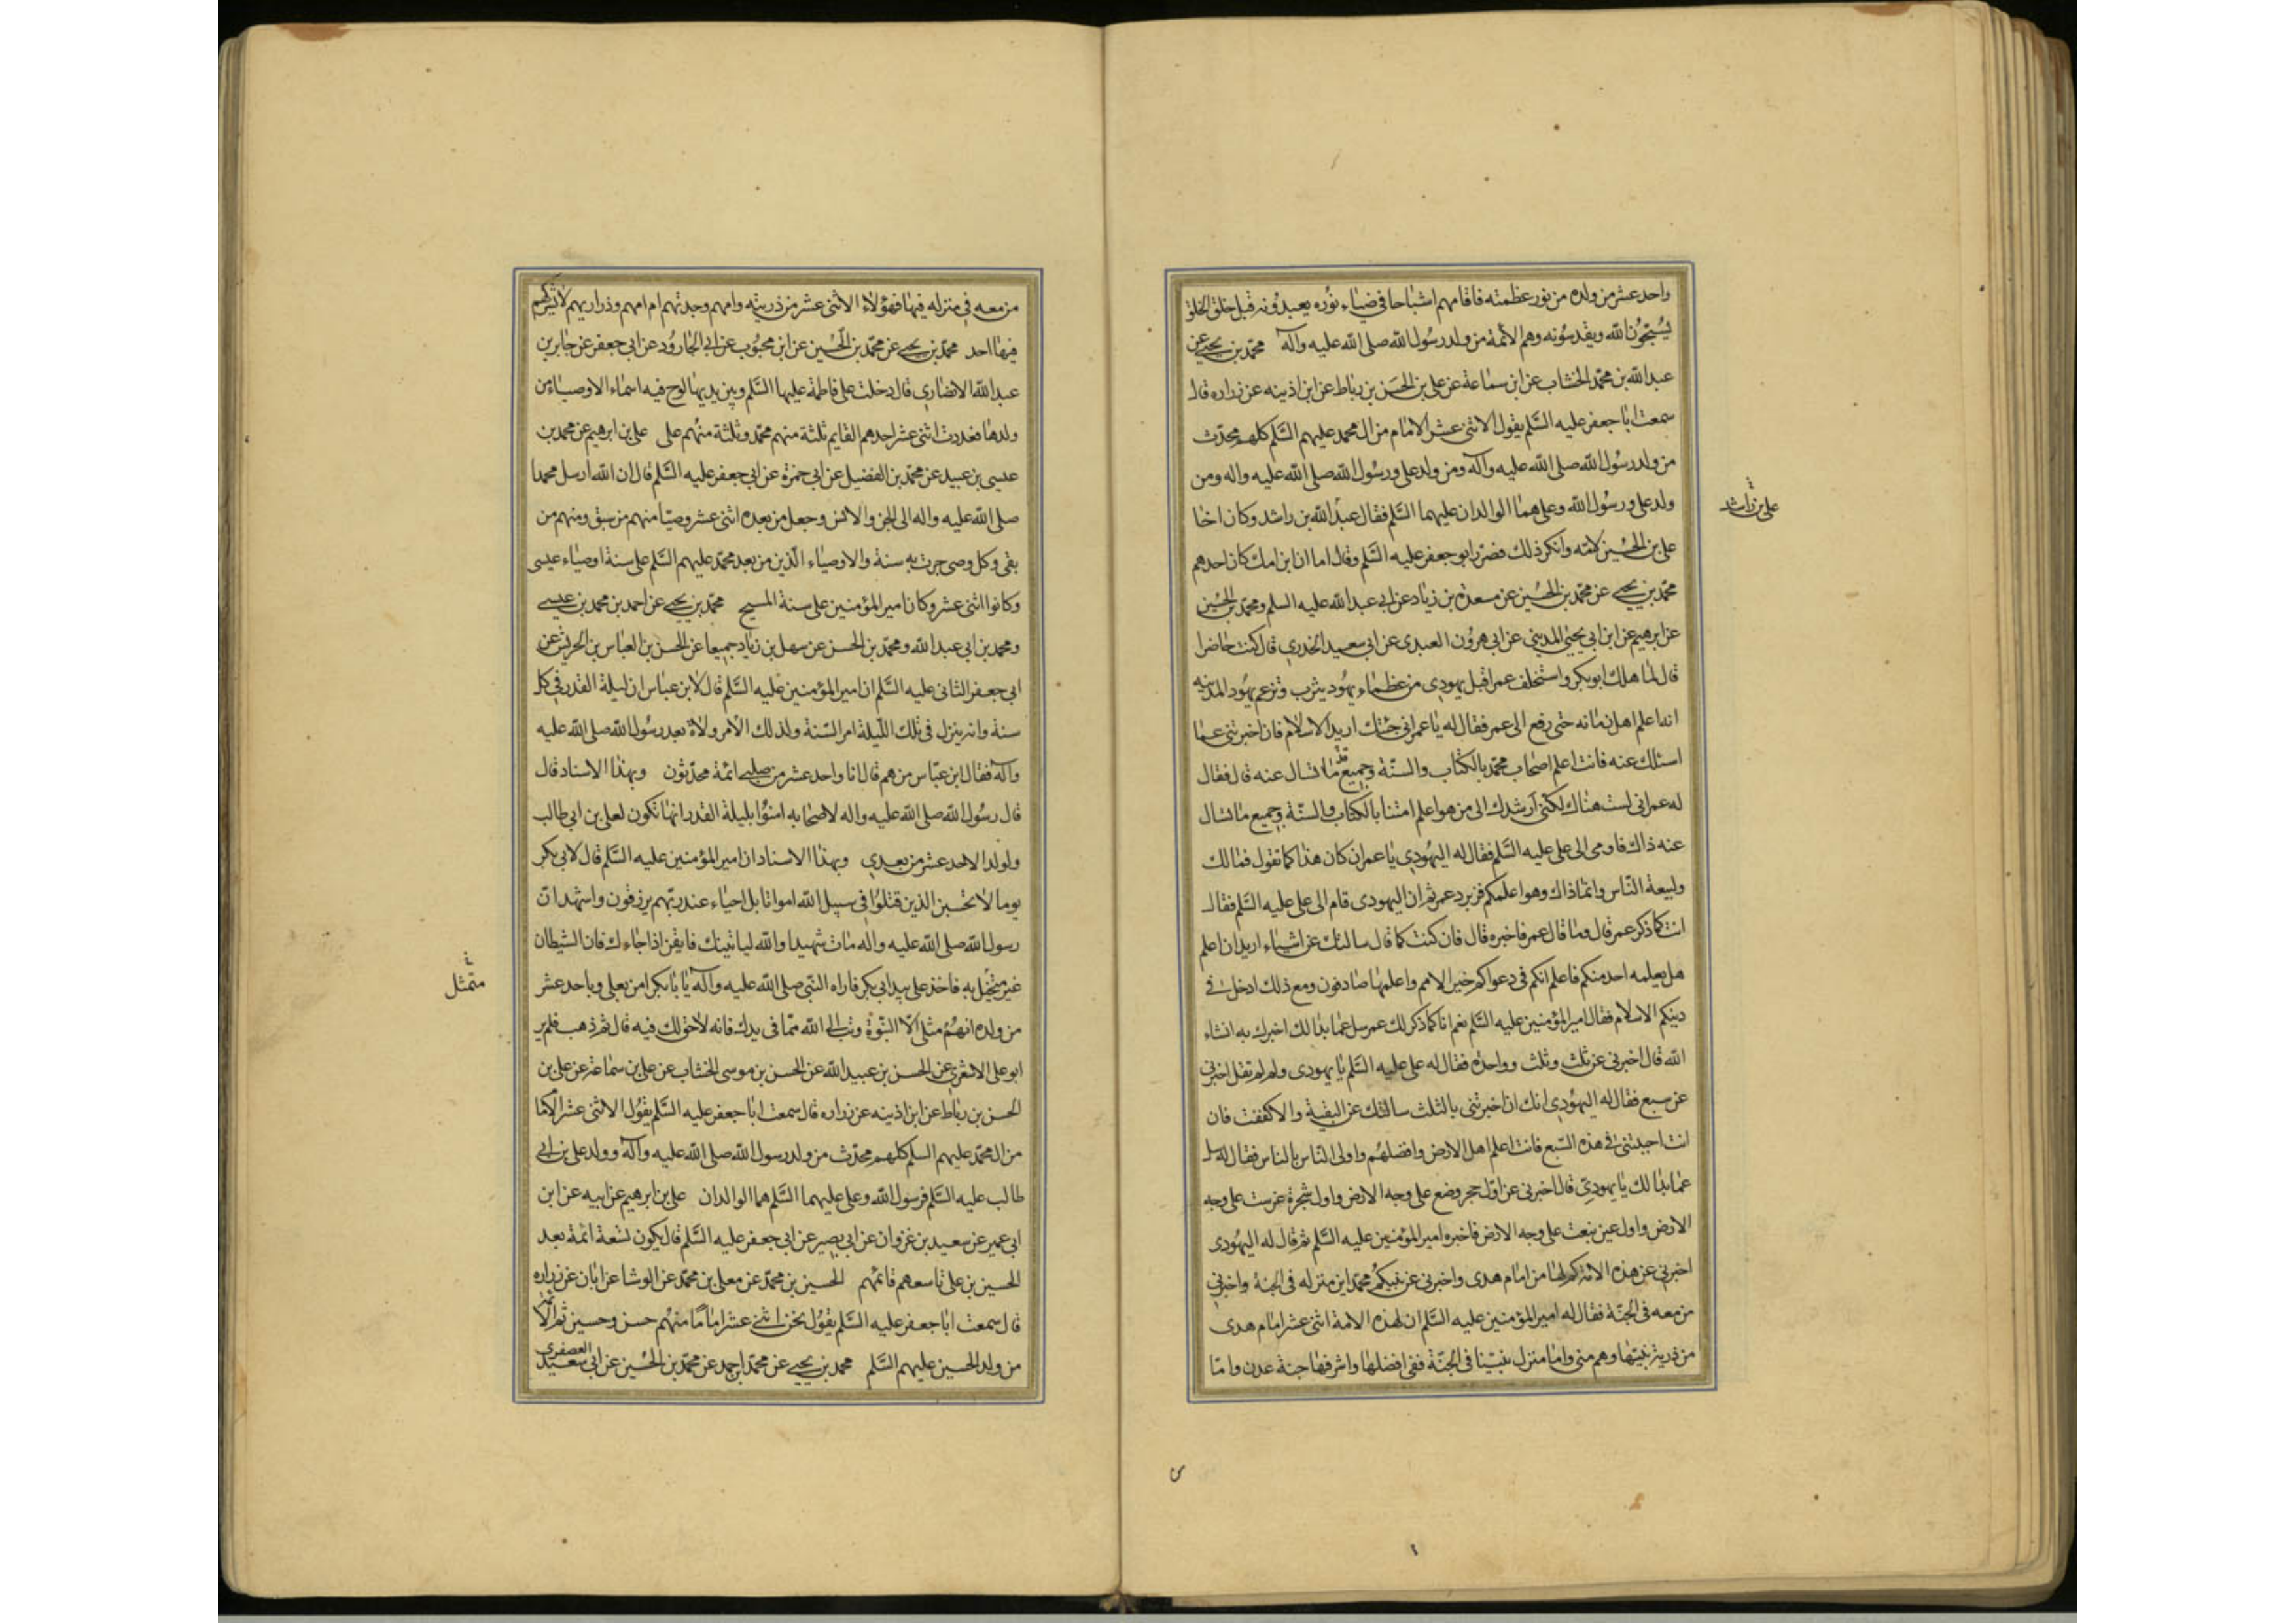 واحد عشر من ولده من نور عظمته فاقامهم اشباحا في ضياء نوره يعبدونه قبل خلق الخلق
يسبحون الله ويقدسونه وهم الأئمة من ولد رسول الله صلى الله عليه وآله محمد بن يحيى عن
عبد الله بن محمد الخشاب عن ابن سماعة عن علي بن الحسن بن رباط عن ابن اذينه عن زراره قال
سمعت ابا جعفر عليه السلم يقول الاثنى عشر الامام من ال محمد عليهم السلم كلهم محدث
من ولد رسول الله صلى الله عليه وآله ومن ولد علي ورسول الله صلى الله عليه واله ومن
ولد علي ورسول الله وعلى هما الوالدان عليهما السلم فقال عبد الله بن راشد وكان اخا
علي بن راشد
علي بن الحسين لامه وانكر ذلك فضرر ابو جعفر عليه السلم وقال اما ان ابن امك كان احدهم
محمد بن يحيى عن محمد بن الحسين عن مسعدة بن زياد عن ابي عبد الله عليه السلم ومحمد بن الحسين
عن ابرهيم عن ابن ابي يحيى المديني عن ابي هرون العبدي عن ابي سعيد الخدري قال كنت حاضرا
قال لما هلك ابو بكر واستخلف عمر اقبل يهودي من عظماء يهود يثرب وتزعم يهود المدينه
انه اعلم اهل زمانه حتى رفع الى عمر فقال له يا عمر اني جئتك اريد الاسلام فان اخبرتني عما
اسئلك عنه فانت اعلم اصحاب محمد بالكتاب والسنة وجميع ما قد تسال عنه قال فقال
له عمر اني لست هناك لكني ارشدك الى من هو اعلم امتنا بالكتاب والسنة وجميع ما تسال
عنه ذاك فاومى الى علي عليه السلم فقال له اليهودي يا عمر ان كان هذا كما تقول فما لك
ولبيعة الناس وانما ذاك وهو اعلمكم فزبره عمر ثم ان اليهودي قام الى علي عليه السلم فقال
انت كما ذكر عمر قال وما قال عمر فاخبره قال فان كنت كما قال سالتك عن اشياء اريد ان اعلم
هل يعلمه احد منكم فاعلم انكم في دعواكم خير الامم واعلمها صادقون ومع ذلك ادخل في
دينكم الاسلام فقال امير المؤمنين عليه السلم نعم انا كما ذكر لك عمر سل عما بدا لك اخبرك به انشاء
الله قال اخبرني عن ثلث وثلث وواحدة فقال له علي عليه السلم يا يهودي ولم لم تقل اخبرني
عن سبع فقال له اليهودي انك ان اخبرتني بالثلث سالتك عن البقية والا كففت فان
انت اجبتني في هذه السبع فانت اعلم اهل الارض وافضلهم واولى الناس بالناس فقال له سل
عما بدا لك يا يهودي قال اخبرني عن اول حجر وضع على وجه الارض واول شجرة غرست على وجه
الارض واول عين نبعت على وجه الارض فاخبره امير المؤمنين عليه السلم ثم قال له اليهودي
اخبرني عن هذه الامة كم لها من امام هدى واخبرني عن نبيكم محمد اين منزله في الجنة واخبرني
من معه في الجنة فقال له امير المؤمنين عليه السلم ان لهذه الامة اثنى عشر امام هدى
من ذرية نبيها وهم مني واما منزل نبينا في الجنة ففي افضلها واشرفها جنة عدن واما
من معه في منزله فيها فهؤلاء الاثنى عشر من ذريته وامهم وجدتهم ام امهم وذراريهم لا يشركهم
فيها احد محمد بن يحيى عن محمد بن الحسين عن ابن محبوب عن ابي الجارود عن ابي جعفر عن جابر بن
عبد الله الانصاري قال دخلت على فاطمة عليها السلم وبين يديها لوح فيه اسماء الاوصياء من
ولدها فعددت اثنى عشر احدهم القايم ثلثة منهم محمد وثلثة منهم علي علي بن ابرهيم عن محمد بن
عيسى بن عبيد عن محمد بن الفضيل عن ابي حمزة عن ابي جعفر عليه السلم قال ان الله ارسل محمدا
صلى الله عليه واله الى الجن والانس وجعل من بعده اثنى عشر وصيا منهم من سبق ومنهم من
بقى وكل وصى جرت به سنة والاوصياء الذين من بعد محمد عليهم السلم على سنة اوصياء عيسى
وكانوا اثنى عشر وكان امير المؤمنين على سنة المسيح محمد بن يحيى عن احمد بن محمد بن عيسى
ومحمد بن ابي عبد الله ومحمد بن الحسن عن سهل بن زياد جميعا عن الحسن بن العباس بن الحريش عن
ابي جعفر الثاني عليه السلم ان امير المؤمنين عليه السلم قال لابن عباس ان ليلة القدر في كل
سنة وانه ينزل في تلك الليلة امر السنة ولذلك الامر ولاة بعد رسول الله صلى الله عليه
وآله فقال ابن عباس من هم قال انا واحد عشر من صلبي ائمة محدثون وبهذا الاسناد قال
قال رسول الله صلى الله عليه واله لاصحابه امنوا بليلة القدر انها تكون لعلي بن ابي طالب
ولولده الاحد عشر من بعدي وبهذا الاسناد ان امير المؤمنين عليه السلم قال لابي بكر
يوما لا تحسبن الذين قتلوا في سبيل الله امواتا بل احياء عند ربهم يرزقون واشهد ان
رسول الله صلى الله عليه واله مات شهيدا والله لياتينك فايقن اذا جاءك فان الشيطان
غير متخيل به فاخذ علي بيد ابي بكر فاراه النبي صلى الله عليه وآله يا با بكر امن بعلي وباحد عشر
متمثل
من ولده انهم مثلي الا النبوة وتب الى الله مما في يدك فانه لا حق لك فيه قال ثم ذهب فلم ير
ابو علي الاشعري عن الحسن بن عبيد الله عن الحسن بن موسى الخشاب عن علي بن سماعة عن علي بن
الحسن بن رباط عن ابن اذينه عن زراره قال سمعت ابا جعفر عليه السلم يقول الاثنى عشر الاما
من ال محمد عليهم السلم كلهم محدث من ولد رسول الله صلى الله عليه وآله وولد علي بن ابي
طالب عليه السلم فرسول الله وعلي عليهما السلم هما الوالدان علي بن ابرهيم عن ابيه عن ابن
ابي عمير عن سعيد بن غزوان عن ابي بصير عن ابي جعفر عليه السلم قال يكون تسعة ائمة بعد
الحسين بن علي تاسعهم قائمهم الحسين بن محمد عن معلى بن محمد عن الوشا عن ابان عن زراره
قال سمعت ابا جعفر عليه السلم يقول نحن اثنى عشر اماما منهم حسن وحسين ثم الا ئمة
من ولد الحسين عليهم السلم محمد بن يحيى عن محمد بن احمد عن محمد بن الحسين عن ابي سعيد العصفري